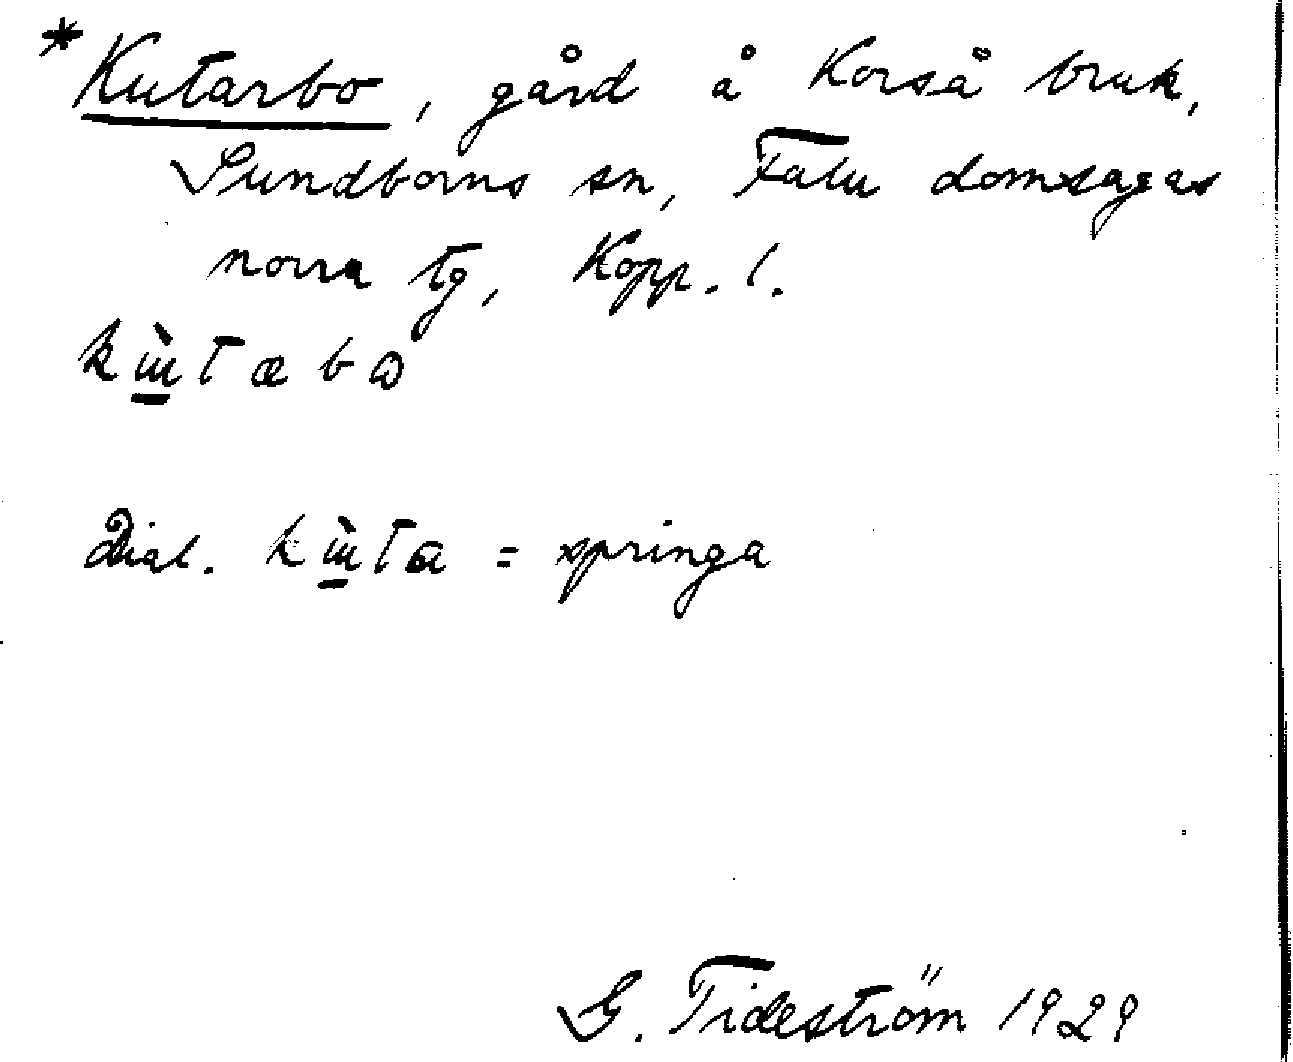 *Kutarbo, gård å Korså bruk,
Sundborns sn, Falu domsagas
norra tg, Kopp. l.
kɯ̱̀tæbɷ
Dial. kɯ̱̀ta = springa
G. Tideström 1929